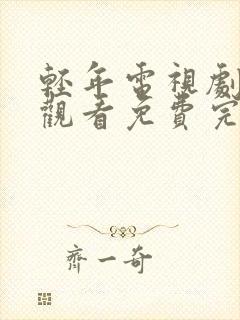 輕年電視劇
觀看免費完
齊一奇